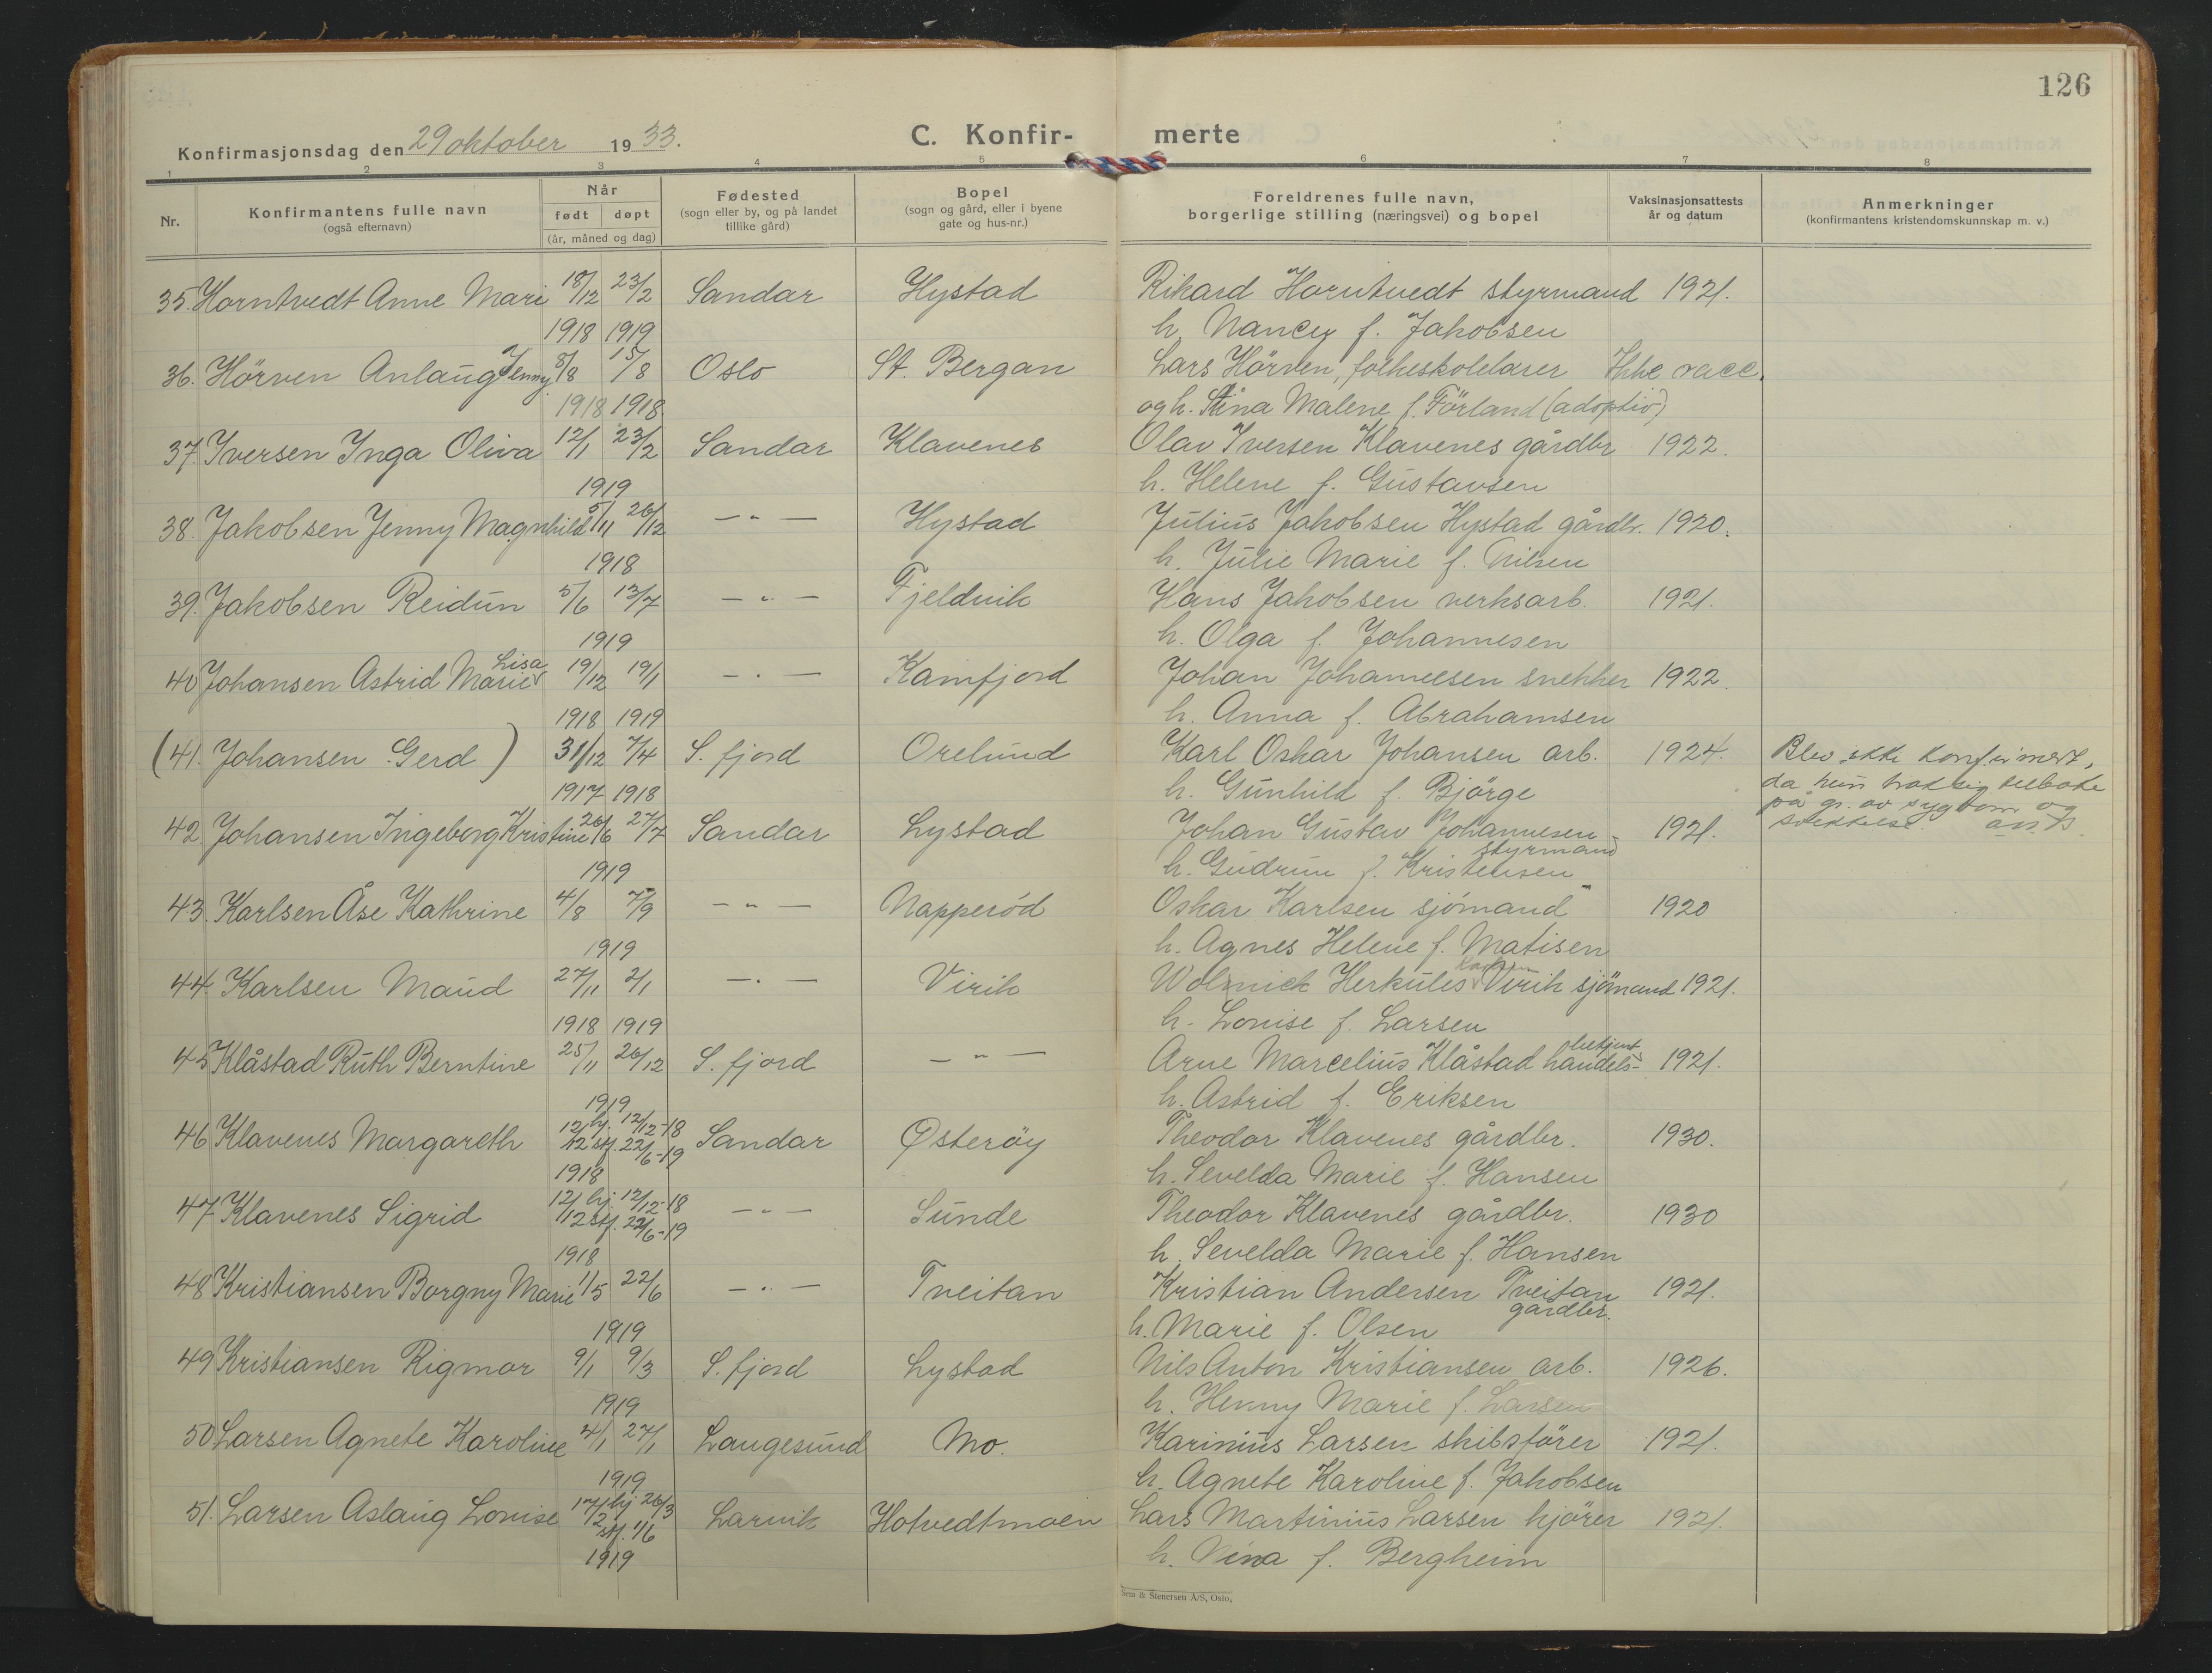 126
Konfirmasjonsdag den 29 oktober 1933.
C. Konfir- merte
1 2 3 4 5 6 7 8
Nr.
Konfirmantens fulle navn
(også efternavn)
Når
født døpt
(år, måned og dag)
Fødested
(sogn eller by, og på landet
tillike gård)
Bopel
(sogn og gård, eller i byene
gate og hus-nr.)
Foreldrenes fulle navn,
borgerlige stilling (næringsvei) og bopel
Vaksinasjonsattests
år og datum
Anmerkninger
(konfirmantens kristendomskunnskap m. v.)
35. Horntvedt Anne Mari 18/12 23/2 Sandar Hystad Rikard Horntvedt styrmand 1921.
1918 1919 h. Nancy f. Jakobsen
36. Hörven Anlaug Jenny 8/8 15/8 Oslo St. Bergan Lars Hörven, folkeskolelærer Ikke vacc.
1918 1918 og h. Stina Malene f. Förland (adoptiv)
37. Iversen Inga Oliva 12/1 23/2 Sandar Klavenes Olav Iversen Klavenes gårdbr 1922.
1919 h. Helene f. Gustavsen
38. Jakobsen Jenny Magnhild 5/11 26/12 — " — Hystad Julius Jakobsen Hystad gårdbr. 1920.
1918 h. Julie Marie f. Nilsen
39. Jakobsen Reidun 5/6 13/7 — " — Fjeldvik Hans Jakobsen verksarb. 1921.
1919 h. Olga f. Johannesen
40 Johansen Astrid Marie Lisa 19/12 19/1 — " — Kamfjord Johan Johannesen snekker 1922.
1918 1919 h. Anna f. Abrahamsen
(41. Johansen Gerd) 31/12 7/4 S. fjord Orelund Karl Oskar Johansen arb. 1924. Blev ikke konfirmert,
da hun trak sig tilbake
på gr. av sygdom og
svekkelse.
1917 1918 h. Gunhild f. Bjørge
42. Johansen Ingeborg Kristine 26/6 27/7 Sandar Lystad Johan Gustav Johannesen - 1921.
styrmand
1919 h. Gudrun f. Kristensen
43. Karlsen Åse Kathrine 4/8 7/9 — " — Napperød Oskar Karlsen sjömand 1920
1919 h. Agnes Helene f. Matisen
44. Karlsen Maud 27/11 2/1 — " — Virik Wolmick Herkules Virik sjömand 1921.
1918 1919 h. Louise f. Larsen
45 Klåstad Ruth Berntine 25/11 26/12 S. fjord — " — Arne Marcelius Klåstad handels-betjent 1921.
1919 h. Astrid f. Eriksen
46 Klavenes Margareth 12/12 hj. 12/12-18 stf. 22/6-19 Sandar Østerøy Theodor Klavenes gårdbr. 1930.
1918 h. Sevelda Marie f. Hansen
47 Klavenes Sigrid 12/12 hj. 12/12-18 stf. 22/6-19 — " — Sunde Theodor Klavenes gårdbr. 1930
1918 h. Sevelda Marie f. Hansen
48 Kristiansen Borgny Marie 1/5 22/6 — " — Tveitan Kristian Andersen Tveitan 1921.
gårdbr.
1919 h. Marie f. Olsen
49 Kristiansen Rigmor 9/1 9/3 S. fjord Lystad Nils Anton Kristiansen arb. 1926.
1919 h. Henny Marie f. Larsen
50 Larsen Agnete Karoline 4/1 27/1 Langesund Mo. Karinius Larsen skibsfører 1921.
1919 h. Agnete Karoline f. Jakobsen
51. Larsen Aslaug Louise 17/2 hj 26/3 stf. 1/6 Larvik Hotvedtmoen Lars Martinius Larsen kjører 1921.
1919 h. Nina f. Bergheim
Sem & Stenersen A/S, Oslo,